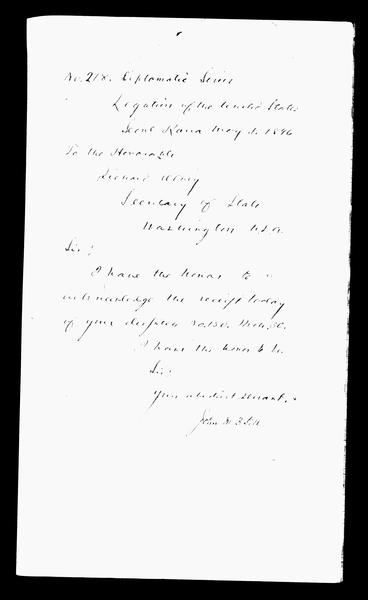 No. 218. Diplomatic Series
Legation of the United States
Seoul Korea May 1, 1896
To the Honorable
Richard Olney
Secretary of State
Washington U.S.A.
Sir:
I have the honor to
acknowledge the receipt today
of your despatch No. 130.
I have the honor to be
Sir:
Your obedient servant,
John M. B. Sill